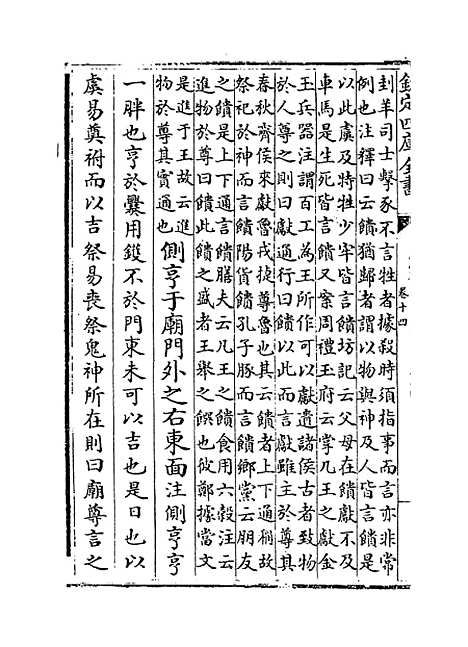 欽定四庫全書
卷十四
刲羊司士擊豕不言牲者據殺時須指事而言亦非常
例也注釋曰云饋猶歸者謂以物與神及人皆言饋是
以此虞及特牲少牢皆言饋坊記云父母在饋獻不及
車馬是生死皆言饋又案周禮玉府云掌凡王之獻金
玉兵器注謂百工為王所作可以獻遺諸侯古者致物
於人尊之則曰獻通行曰饋以此而言獻雖主於尊其
春秋齊侯來獻魯戎捷尊魯也其云饋者上下通稱故
祭祀於神而言饋陽貨饋孔子豚而言饋鄉黨云朋友
之饋是上下通言饋膳夫云凡王之饋食用六穀注云
進物於尊曰饋此饋之盛者王舉之饌也彼鄭據當文
是進于王故云進
物於尊其實通也側亨于廟門外之右東面注側亨亨
一胖也亨於爨用鑊不於門東未可以吉也是日也以
虞易奠祔而以吉祭易喪祭鬼神所在則曰廟尊言之